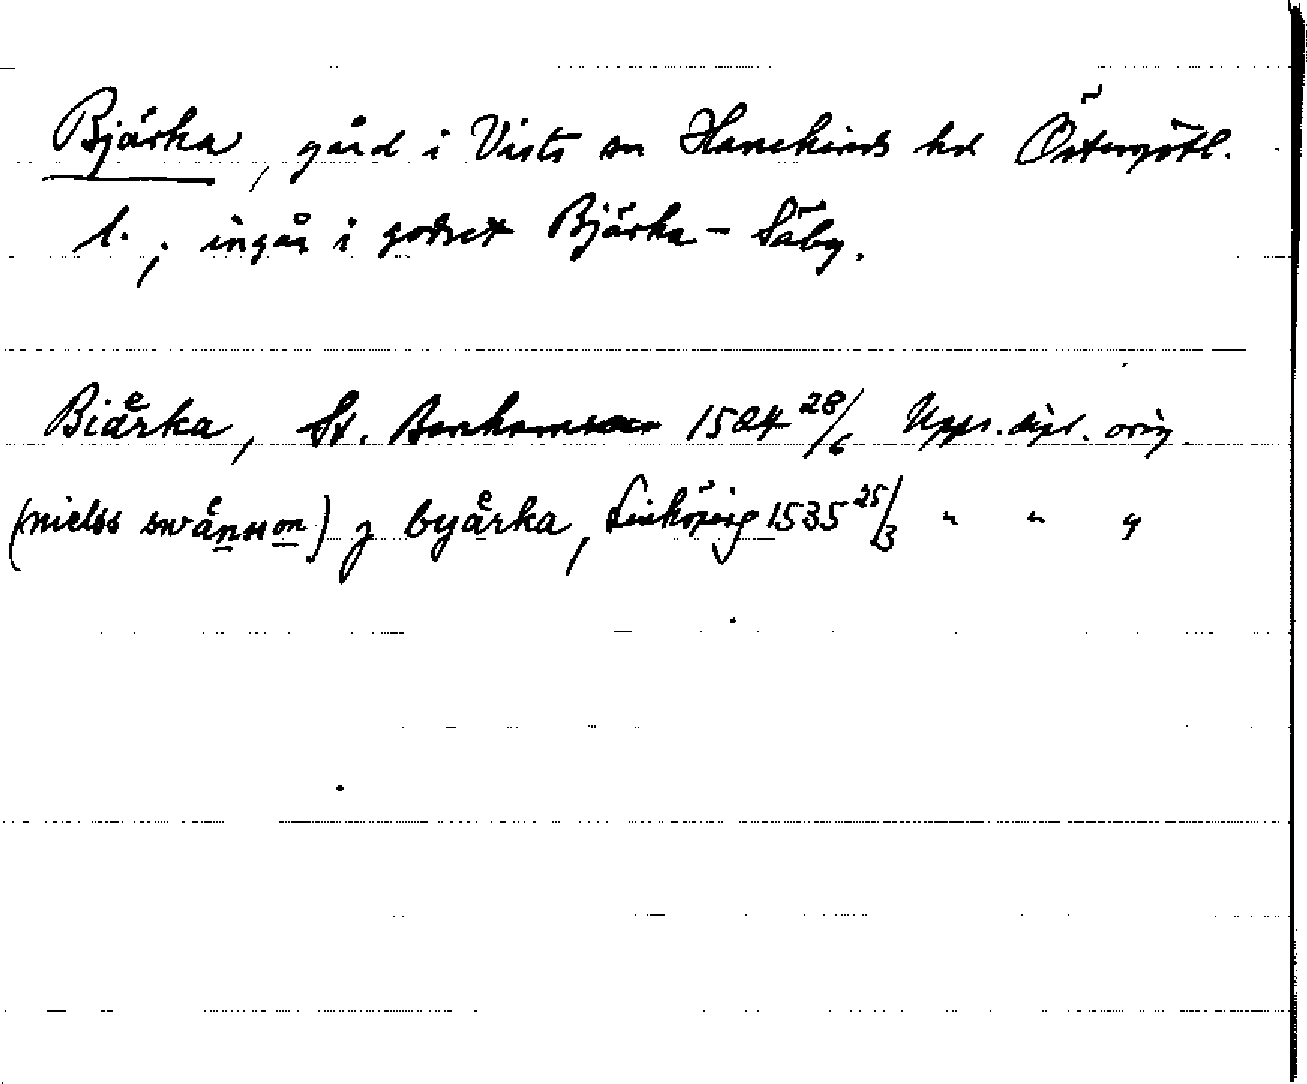 Bjärka, gård i Vists sn Hanekinds hd Östergötl.
l.; ingår i godset Bjärka-Säby.
Biaͤrka, St. 1524 28/6 Upps. dipl. orig.
(nielss swaͤnsson) j byaͤrka, Linköping 1535 25/3 " " "